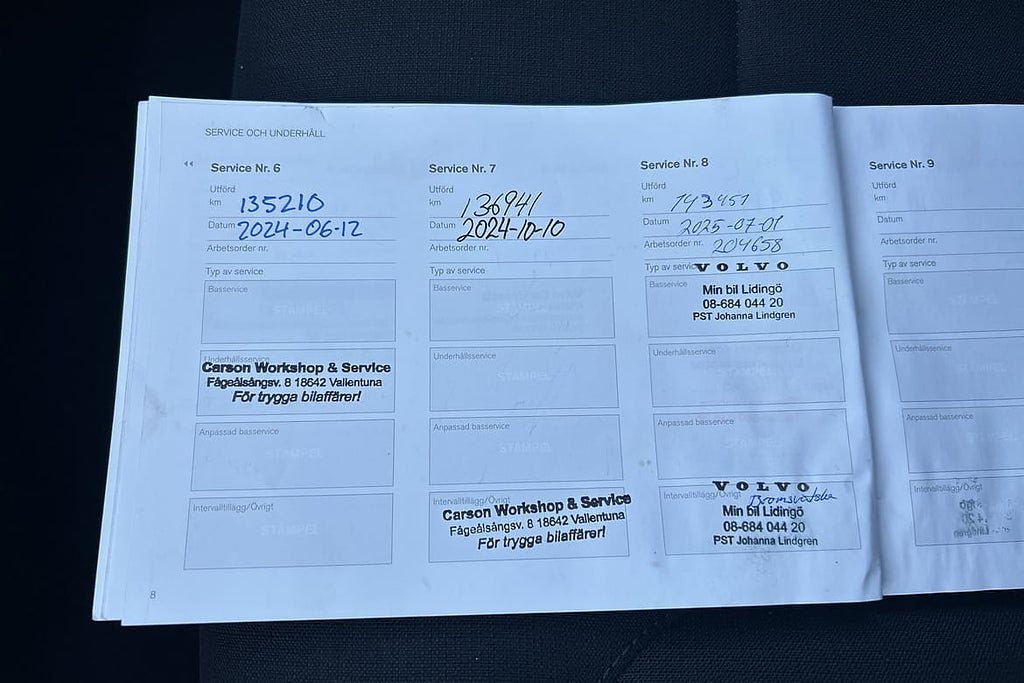 SERVICE OCH UNDERHÅLL
Service Nr. 6
Utförd
km 135210
Datum 2024-06-12
Arbetsorder nr.
Typ av service
Basservice
STÄMPEL
Underhållsservice
Carson Workshop & Service
Fågelsångsv. 8 18642 Vallentuna
För trygga bilaffärer!
Anpassad basservice
STÄMPEL
Intervalltillägg/Övrigt
STÄMPEL
8
Service Nr. 7
Utförd
km 136941
Datum 2024-10-10
Arbetsorder nr.
Typ av service
Basservice
STÄMPEL
Underhållsservice
STÄMPEL
Anpassad basservice
STÄMPEL
Intervalltillägg/Övrigt
Carson Workshop & Service
Fågelsångsv. 8 18642 Vallentuna
För trygga bilaffärer!
Service Nr. 8
Utförd
km 143451
Datum 2025-07-01
Arbetsorder nr. 204658
Typ av service
VOLVO
Basservice
Min bil Lidingö
08-684 044 20
PST Johanna Lindgren
Underhållsservice
STÄMPEL
Anpassad basservice
STÄMPEL
VOLVO
Intervalltillägg/Övrigt Bromsvätska
Min bil Lidingö
08-684 044 20
PST Johanna Lindgren
Service Nr. 9
Utförd
km
Datum
Arbetsorder nr.
Typ av service
Basservice
STÄMPEL
Underhållsservice
STÄMPEL
Anpassad basservice
STÄMPEL
Intervalltillägg/Övrigt